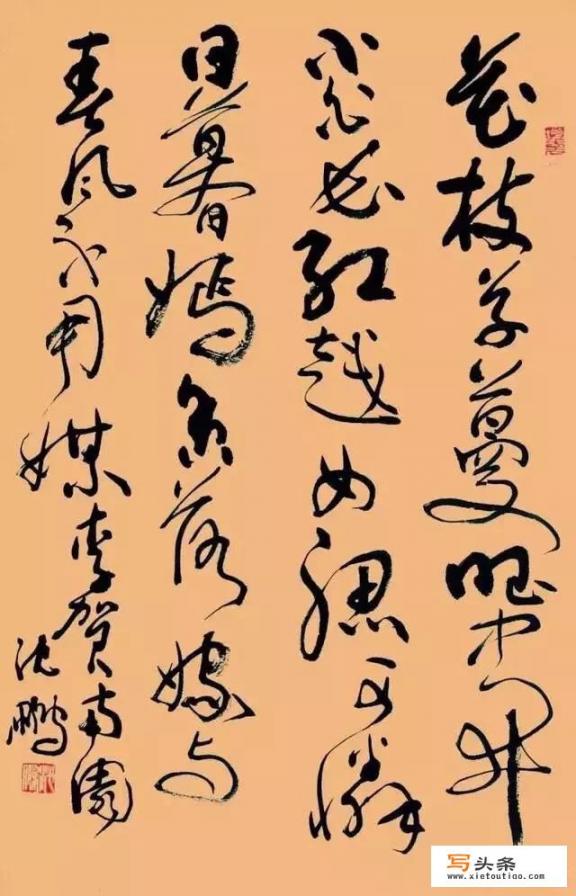 花枝草蔓眼中開
小白長紅越女腮可憐
日暮嫣香落嫁与
春風不用媒李賀南園
沈鵬
写头条
www.xietoutiao.com